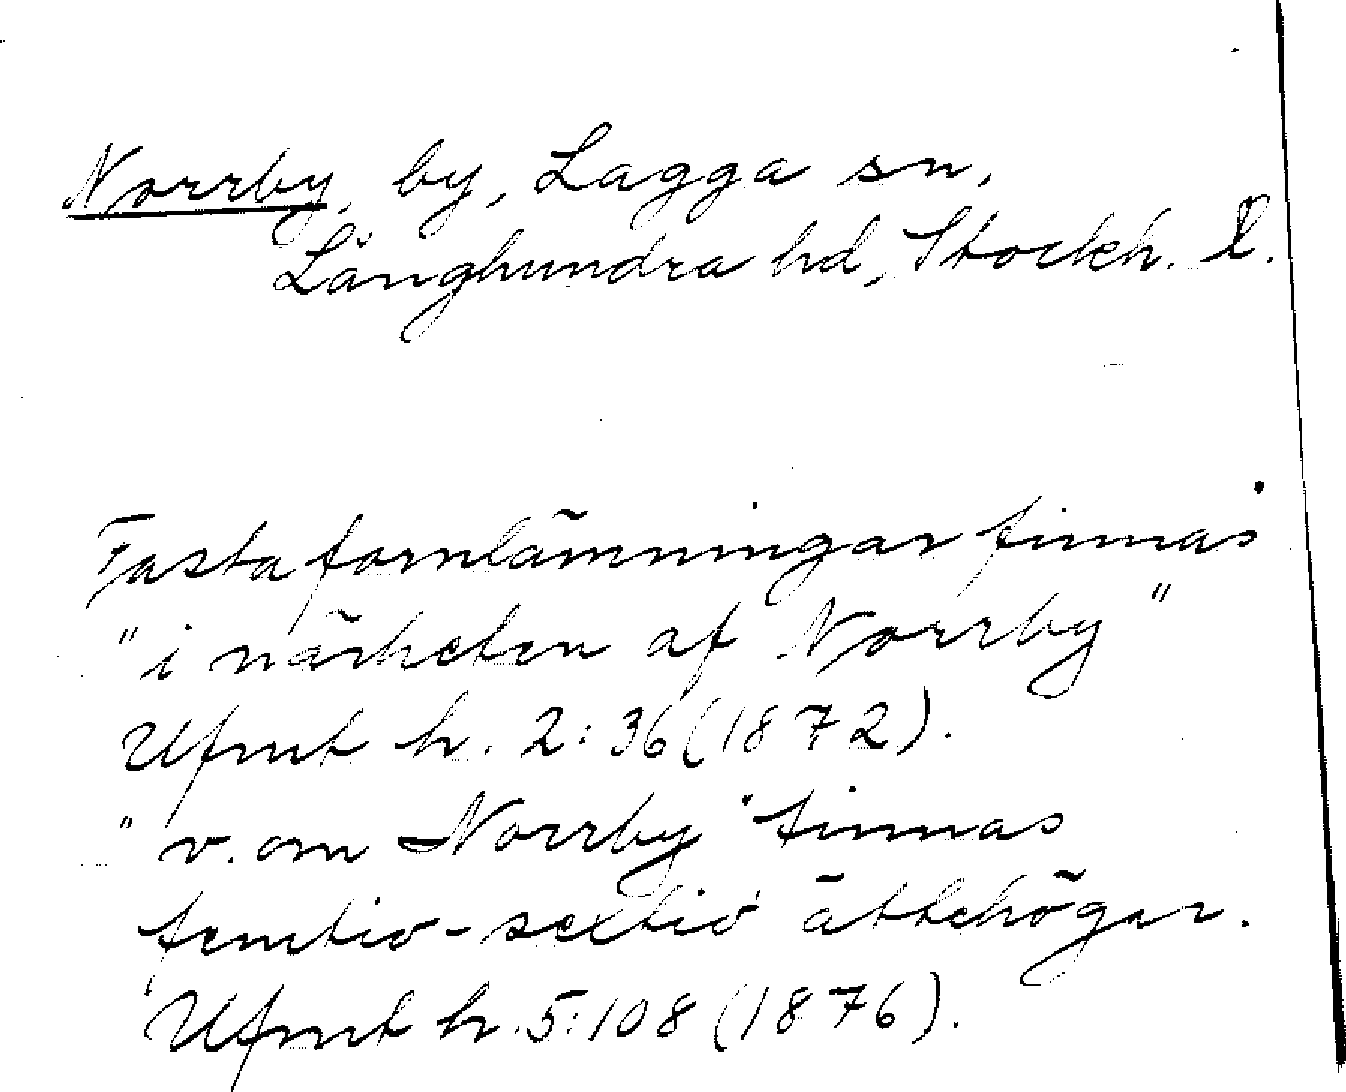 Norrby, by, Lagga sn,
Långhundra hd, Stockh. l.
Fasta fornlämningar finnas
"i närheten af Norrby"
Ufmt h. 2:36 (1872).
"v. om Norrby" finnas
femtio-sextio ättehögar.
Ufmt h. 5:108 (1876).